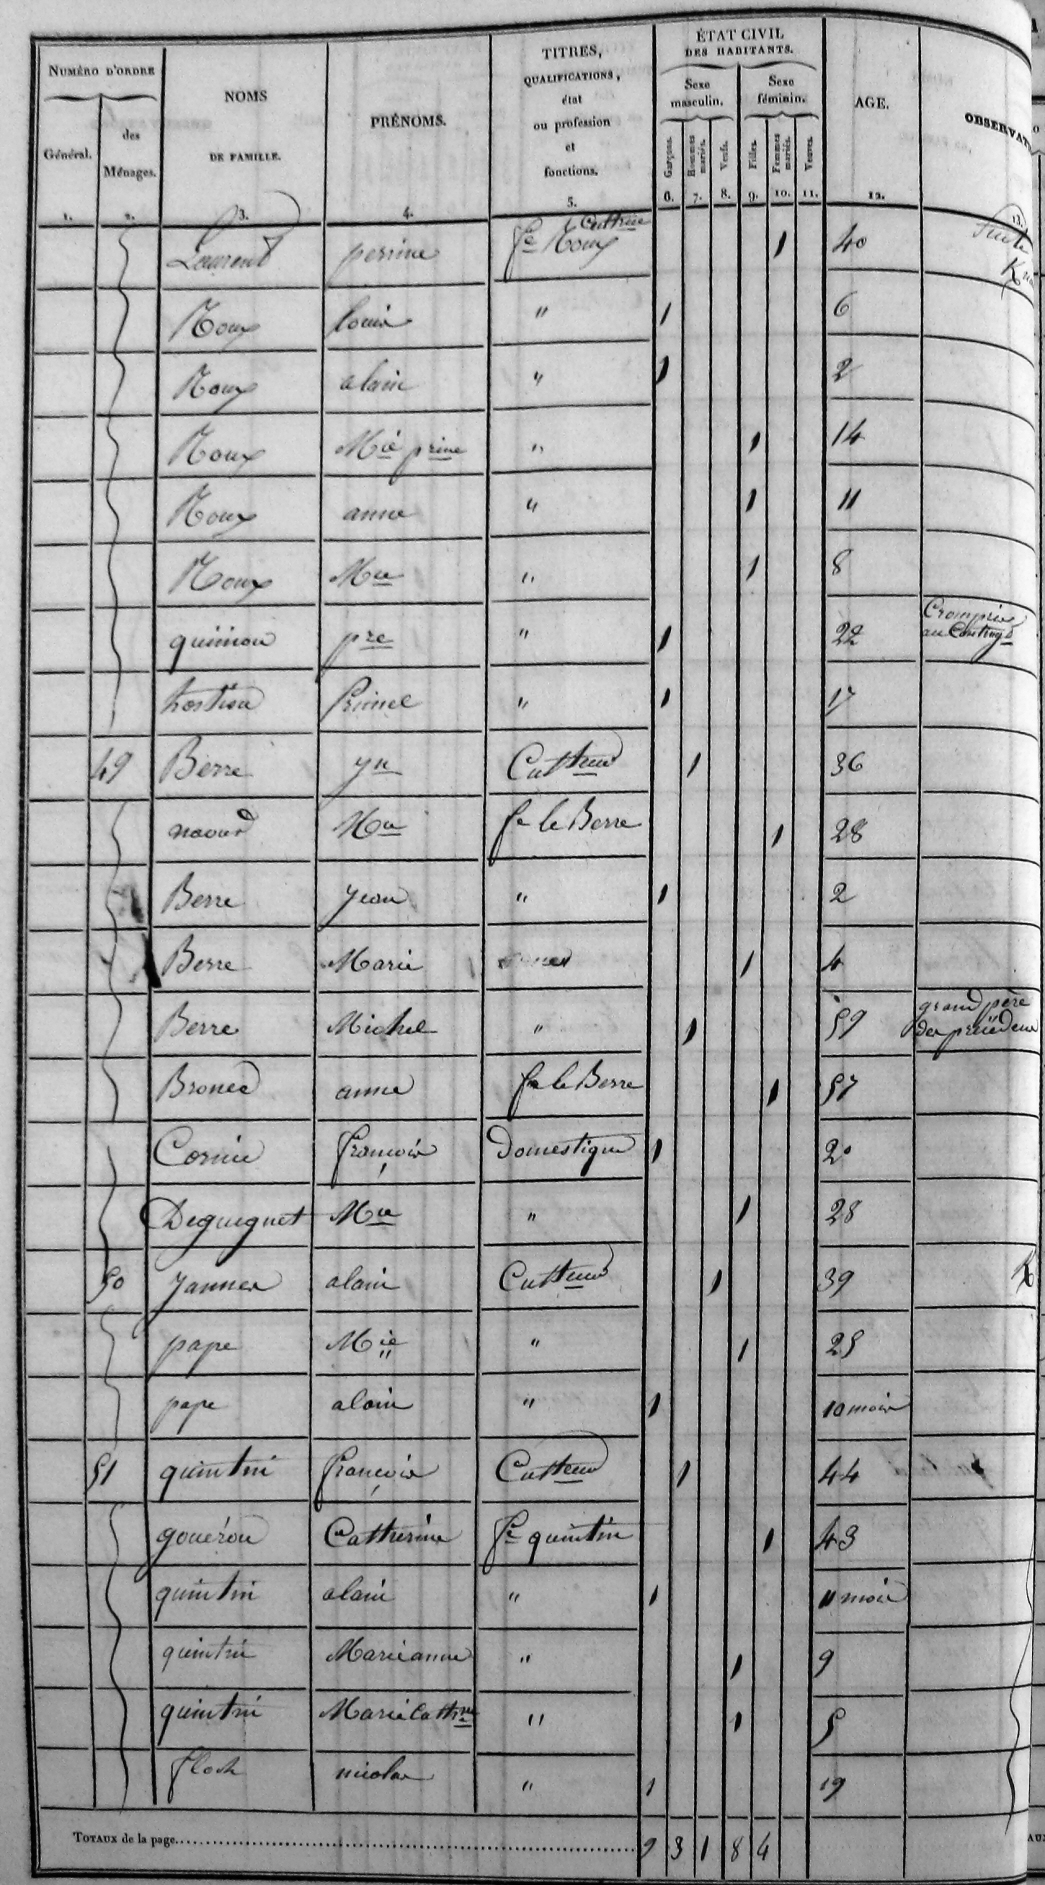 NUMÉRO D'ORDRE
Général.
des Ménages.
NOMS DE FAMILLE.
PRÉNOMS.
TITRES, QUALIFICATIONS, état ou profession et fonctions.
ÉTAT CIVIL DES HABITANTS.
Sexe masculin.
Sexe féminin.
Garçons.
Hommes mariés.
Veufs.
Filles.
Femmes mariées.
Veuves.
AGE.
OBSERVAT
1. 2. 3. 4. 5. 6. 7. 8. 9. 10. 11. 12. 13.
Laurent perrine fe Roux 1 40 Suite
Roux louis " 1 6
Roux alain " 1 2
Roux Mie prine " 1 14
Roux anne " 1 11
Roux Mie " 1 8
quiniou pre " 1 22 au
hostiou " 1 17
49 Berre yn Cultteur 1 36
naour Mie fe le Berre 1 28
Berre Jean " 1 2
Berre Marie 1 4
Berre Michel " 1 59 grand père des précédents
Bronec anne fe le Berre 1 57
Cornic françois Domestique 1 20
Deguignet Mie " 1 28
50 Jannes alain Cultteur 1 39
pape Mie " 1 25
pape alain " 1 10 mois
51 quintin françois Cultteur 1 44
gouérou Catherine fe quintin 1 43
quintin alain " 1 11 mois
quintin Marieanne " 1 9
quintin Marie Cathne " 1 5
floch nicolas " 1 19
TOTAUX de la page 9 3 1 8 4